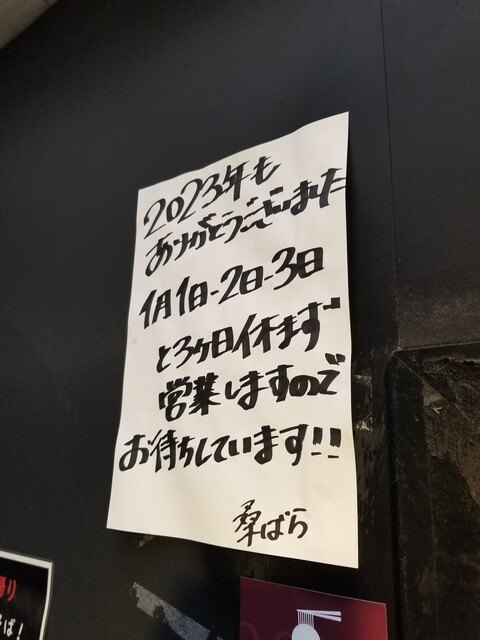 2023年も
ありがとうございました
1月1日-2日-3日
と3ヶ日休まず
営業しますので
お待ちしています!!
桑ばら
り
ば!